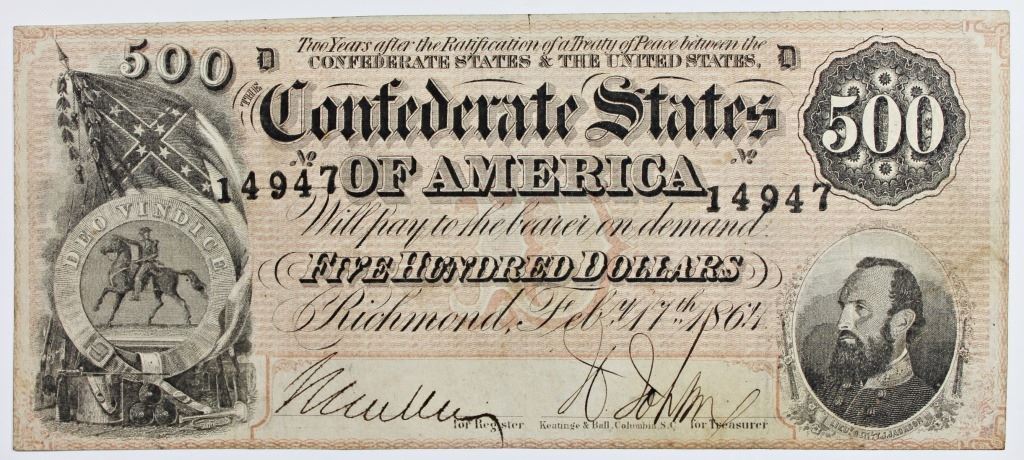 500 D Two Years after the Ratification of a Treaty of Peace between the D
CONFEDERATE STATES & THE UNITED STATES,
500
THE Confederate States
No 14947 OF AMERICA No 14947
Will pay to the bearer on demand
DEO VINDICE
FIVE HUNDRED DOLLARS
Richmond, Feby. 17th 1864
for Register Keatinge & Ball, Columbia, S.C. for Treasurer
LIEUT. GEN. T.J. JACKSON